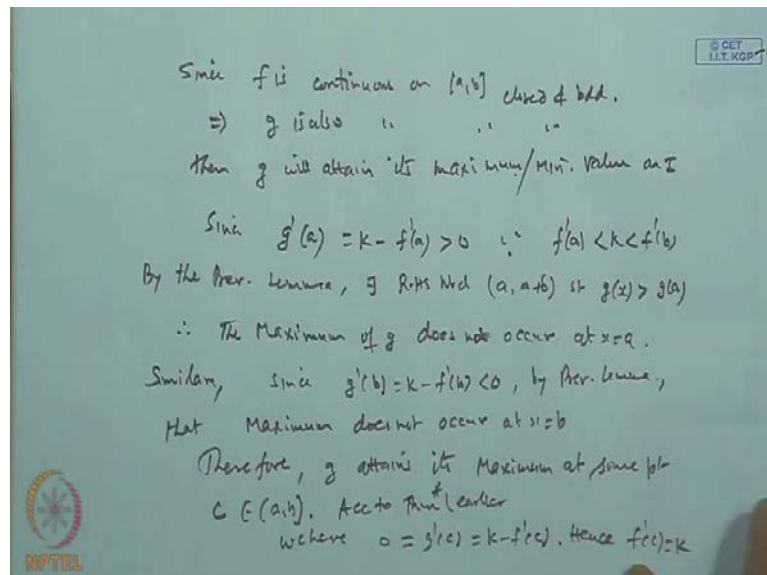 © CET
I.I.T. KGP
Since f is continuous on [a,b] closed & bdd.
=) g is also " " "
then g will attain its maximum/Min. value on I
Since g'(a) = k - f'(a) > 0 ∵ f'(a) < k < f'(b)
By the Prev. Lemma, ∃ R.H.S Nbd (a, a+δ) st g(x) > g(a)
∴ The Maximum of g does not occur at x=a.
Similarly, since g'(b) = k - f'(b) < 0, by Prev. Lemma,
that Maximum does not occur at x=b
Therefore, g attains its Maximum at some pt
C ∈ (a,b). Acc to Thm* (earlier
we have 0 = g'(c) = k - f'(c). Hence f'(c)=k
NPTEL